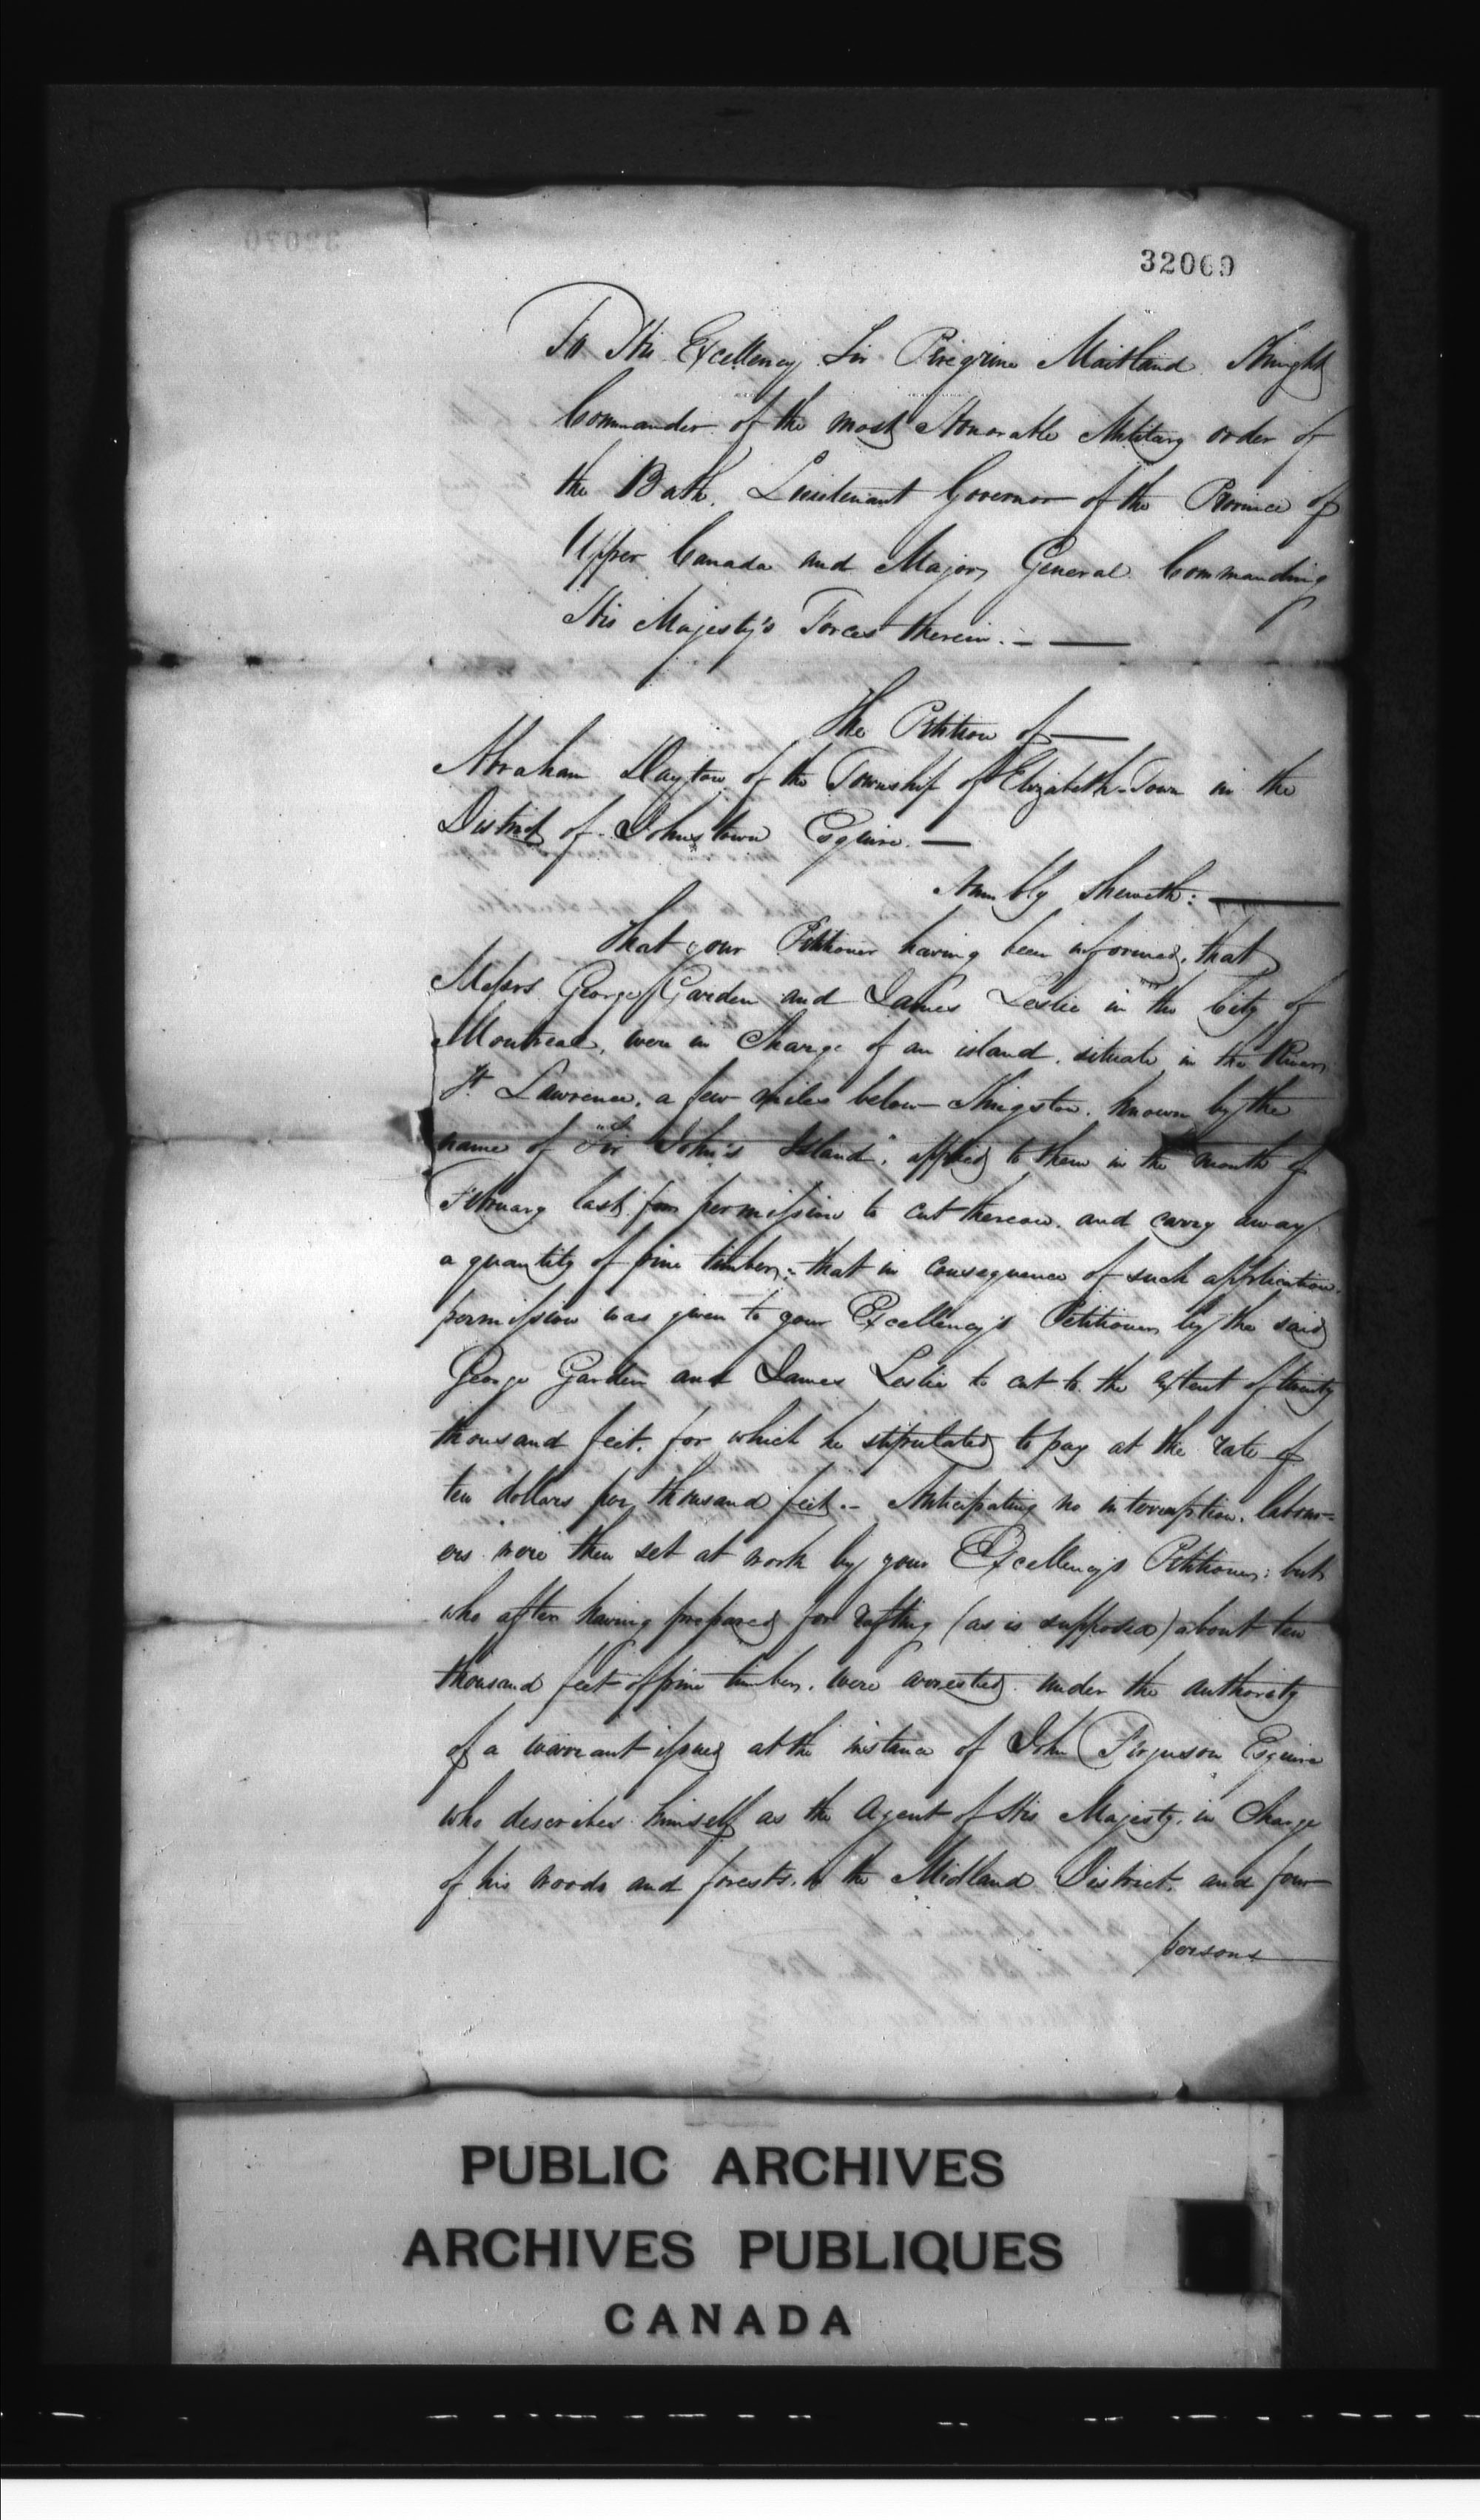 32069
To His Excellency Sir Peregrine Maitland Knight
Commander of the most Honorable Military order of
the Bath, Lieutenant Governor of the Province of
Upper Canada and Major General Commanding
His Majesty's Forces therein. —
The Petition of —
Abraham Dayton of the Township of Elizabeth-Town in the
District of Johnstown Esquire. —
Humbly sheweth: —
That your Petitioner having been informed, that
Messrs George Garden and James Leslie in the City of
Montreal, were in Charge of an island, situate in the River
St. Lawrence, a few miles below Kingston, known by the
name of "Sir John's Island", applied to them in the month of
February last for permission to cut thereon, and carry away
a quantity of pine timber; that in consequence of such application
permission was given to your Excellency's Petitioner by the said
George Garden and James Leslie to cut to the extent of twenty
thousand feet, for which he stipulated to pay at the rate of
ten dollars per thousand feet. - Anticipating no interruption, labour-
ers were then set at work by your Excellency's Petitioner; but
who after having prepared for rafting (as is supposed) about ten
thousand feet of pine timber, were arrested under the authority
of a warrant issued at the instance of John Ferguson Esquire
who describes himself as the Agent of His Majesty, in Charge
of his woods and forests, in the Midland District, and four
persons
PUBLIC ARCHIVES
ARCHIVES PUBLIQUES
CANADA